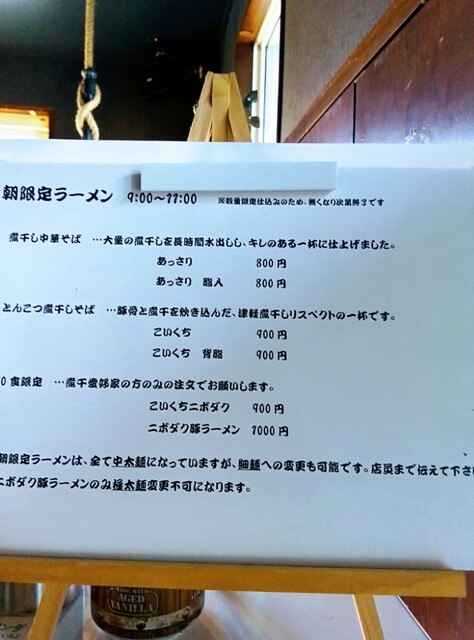 朝限定ラーメン 9:00〜11:00 ※数量限定仕込みのため、無くなり次第終了です
煮干し中華そば …大量の煮干しを長時間水出しし、キレのある一杯に仕上げました。
あっさり 800円
あっさり 脂入 800円
とんこつ煮干しそば …豚骨と煮干を炊き込んだ、津軽煮干しリスペクトの一杯です。
こいくち 900円
こいくち 背脂 900円
0食限定 …煮干愛好家の方のみの注文でお願いします。
こいくちニボダク 900円
ニボダク豚ラーメン 1000円
朝限定ラーメンは、全て中太麺になっていますが、細麺への変更も可能です。店員まで伝えて下さ
ニボダク豚ラーメンのみ極太麺変更不可になります。
MADE WITH
AGED
VANILLA